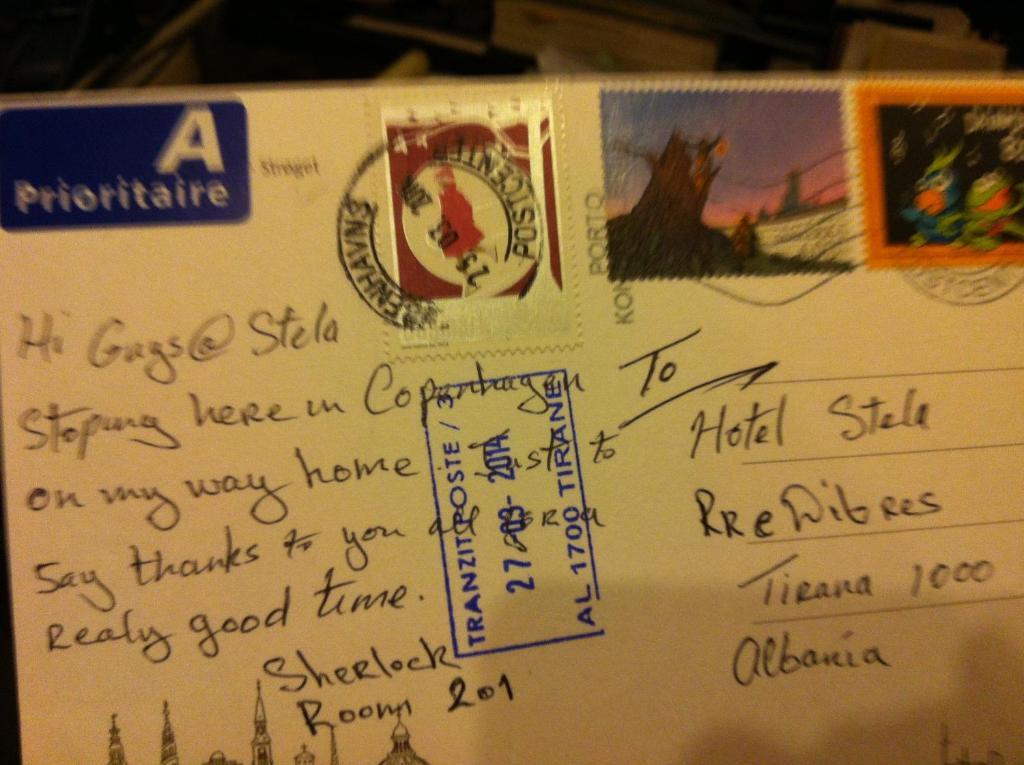 A
Prioritaire
Strøget
POSTCENTER
25 03 20
ENHAVN
PORTO
KO
Hi Guys@ Stela
Stoping here in Copenhagen
on my way home. Just to
Say thanks to you all for a
Realy good time.
Sherlock
Room 201
TRANZIT POSTE / 3
27-03-2014
AL_1700 TIRANE
To
Hotel Stela
RReDibres
Tirana 1000
Albania